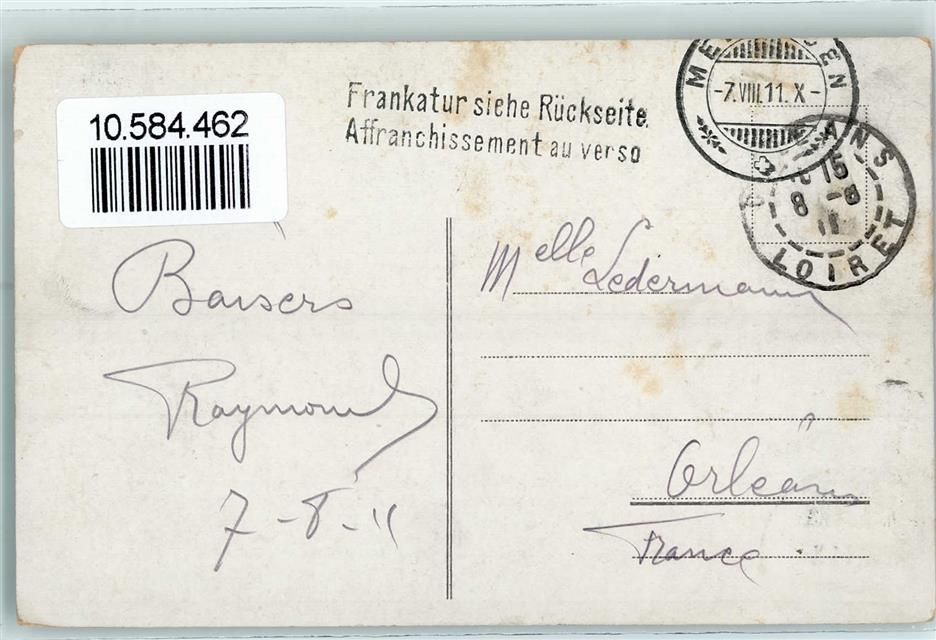 10.584.462
Frankatur siehe Rückseite.
Affranchissement au verso
-7.VIII.11.X-
15
8 -8
11
LOIRET
Baisers
Raymond
7-8-11
Melle Ledermann
Orléans
France